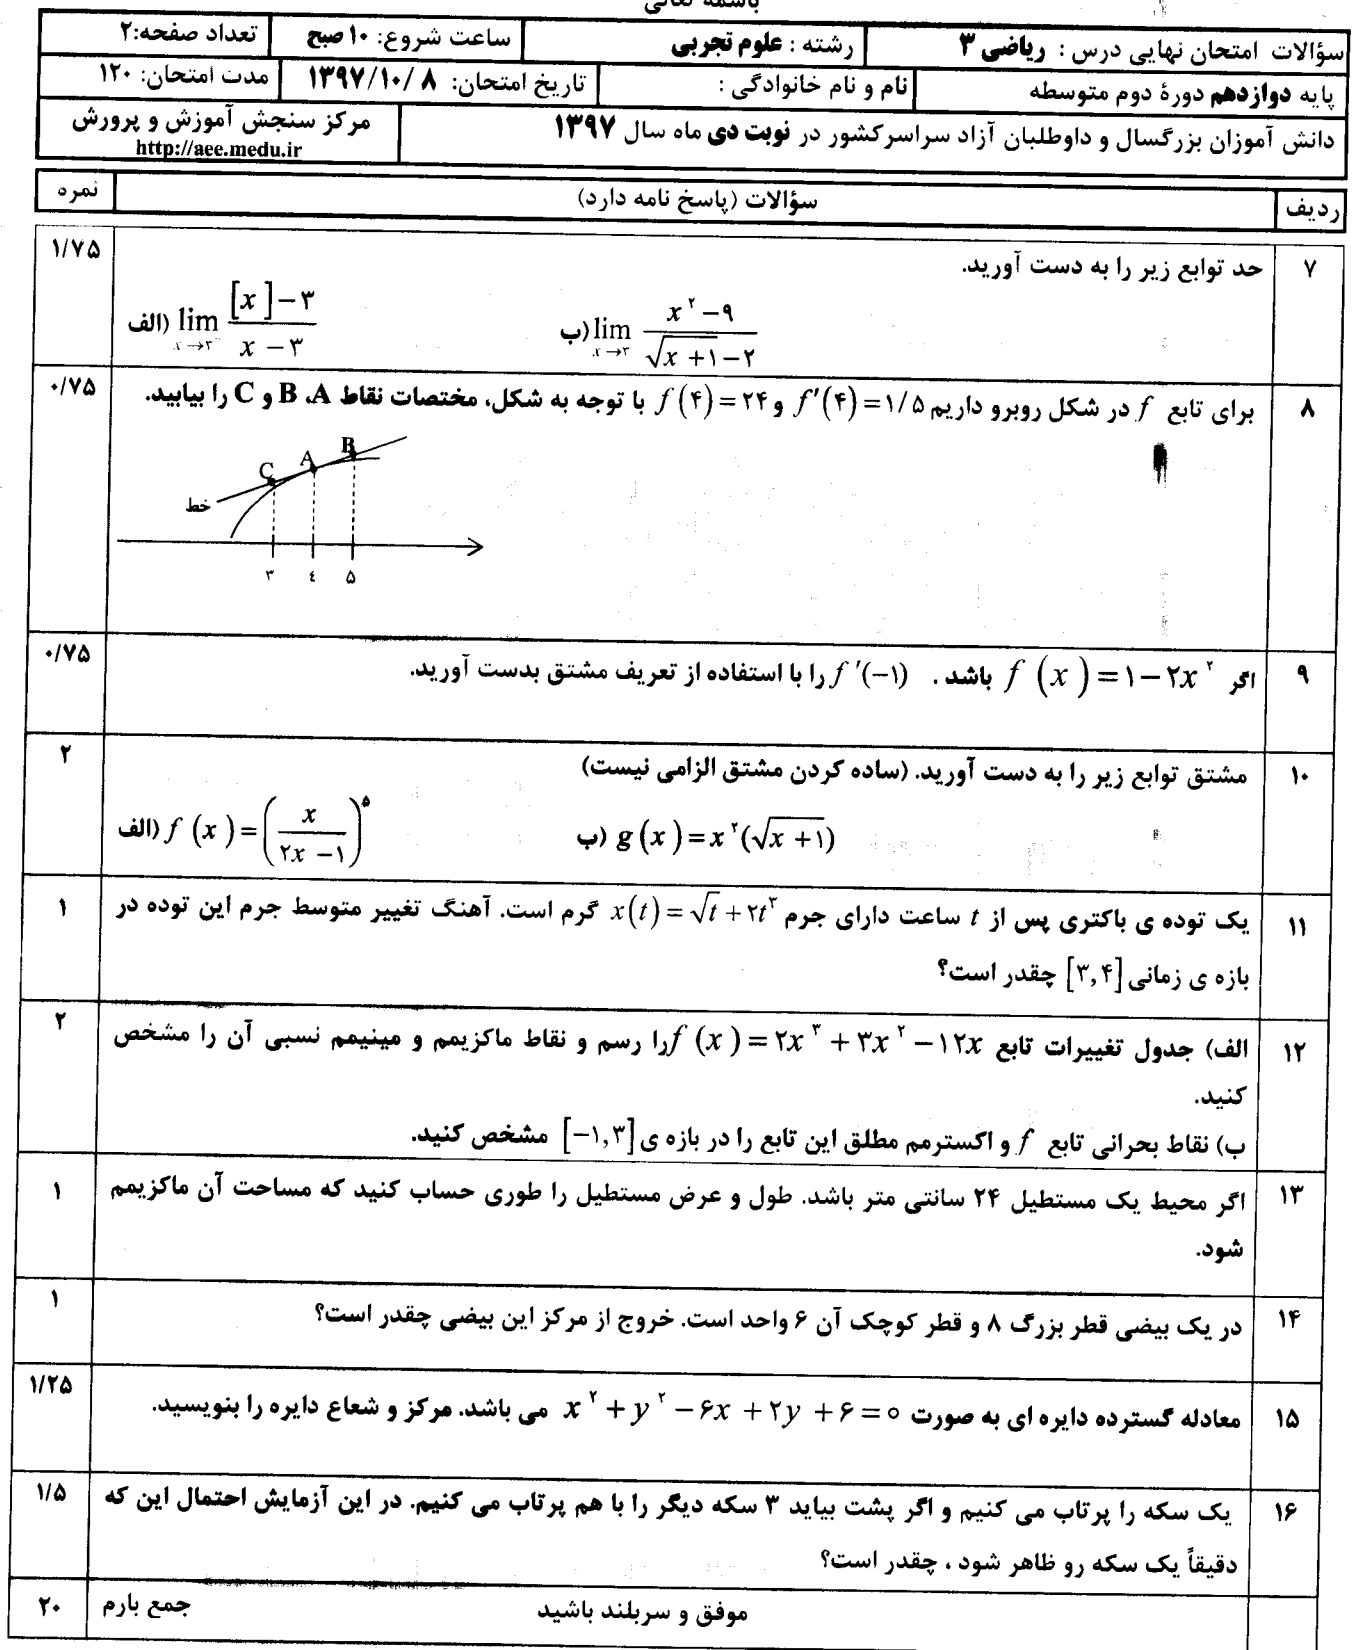 باسمه تعالی
سؤالات امتحان نهایی درس : ریاضی ۳
رشته : علوم تجربی
ساعت شروع: ۱۰ صبح
تعداد صفحه:۲
پایه دوازدهم دورهٔ دوم متوسطه
نام و نام خانوادگی :
تاریخ امتحان: ۸ /۱۳۹۷/۱۰
مدت امتحان: ۱۲۰
دانش آموزان بزرگسال و داوطلبان آزاد سراسرکشور در نوبت دی ماه سال ۱۳۹۷
مرکز سنجش آموزش و پرورش
http://aee.medu.ir
ردیف
سؤالات (پاسخ نامه دارد)
نمره
۷
حد توابع زیر را به دست آورید.
۱/۷۵
الف) lim x→۳⁻ ([x]−۳)/(x−۳)
ب) lim x→۳ (x^۲−۹)/(√(x+۱)−۲)
۸
برای تابع f در شکل روبرو داریم f′(۴)=۱/۵ و f(۴)=۲۴ با توجه به شکل، مختصات نقاط A، B و C را بیابید.
۰/۷۵
B
A
C
خط
۳ ٤ ۵
۹
اگر f(x)=۱−۲x^۲ باشد . f′(−۱) را با استفاده از تعریف مشتق بدست آورید.
۰/۷۵
۱۰
مشتق توابع زیر را به دست آورید. (ساده کردن مشتق الزامی نیست)
۲
الف) f(x)=(x/(۲x−۱))^۵
ب) g(x)=x^۲(√(x+۱))
۱۱
یک توده ی باکتری پس از t ساعت دارای جرم x(t)=√t+۲t^۳ گرم است. آهنگ تغییر متوسط جرم این توده در
بازه ی زمانی [۳,۴] چقدر است؟
۱
۱۲
الف) جدول تغییرات تابع f(x)=۲x^۳+۳x^۲−۱۲x را رسم و نقاط ماکزیمم و مینیمم نسبی آن را مشخص
کنید.
ب) نقاط بحرانی تابع f و اکسترمم مطلق این تابع را در بازه ی [−۱,۳] مشخص کنید.
۲
۱۳
اگر محیط یک مستطیل ۲۴ سانتی متر باشد. طول و عرض مستطیل را طوری حساب کنید که مساحت آن ماکزیمم
شود.
۱
۱۴
در یک بیضی قطر بزرگ ۸ و قطر کوچک آن ۶ واحد است. خروج از مرکز این بیضی چقدر است؟
۱
۱۵
معادله گسترده دایره ای به صورت x^۲+y^۲−۶x+۲y+۶=۰ می باشد. مرکز و شعاع دایره را بنویسید.
۱/۲۵
۱۶
یک سکه را پرتاب می کنیم و اگر پشت بیاید ۳ سکه دیگر را با هم پرتاب می کنیم. در این آزمایش احتمال این که
دقیقاً یک سکه رو ظاهر شود ، چقدر است؟
۱/۵
موفق و سربلند باشید
جمع بارم
۲۰